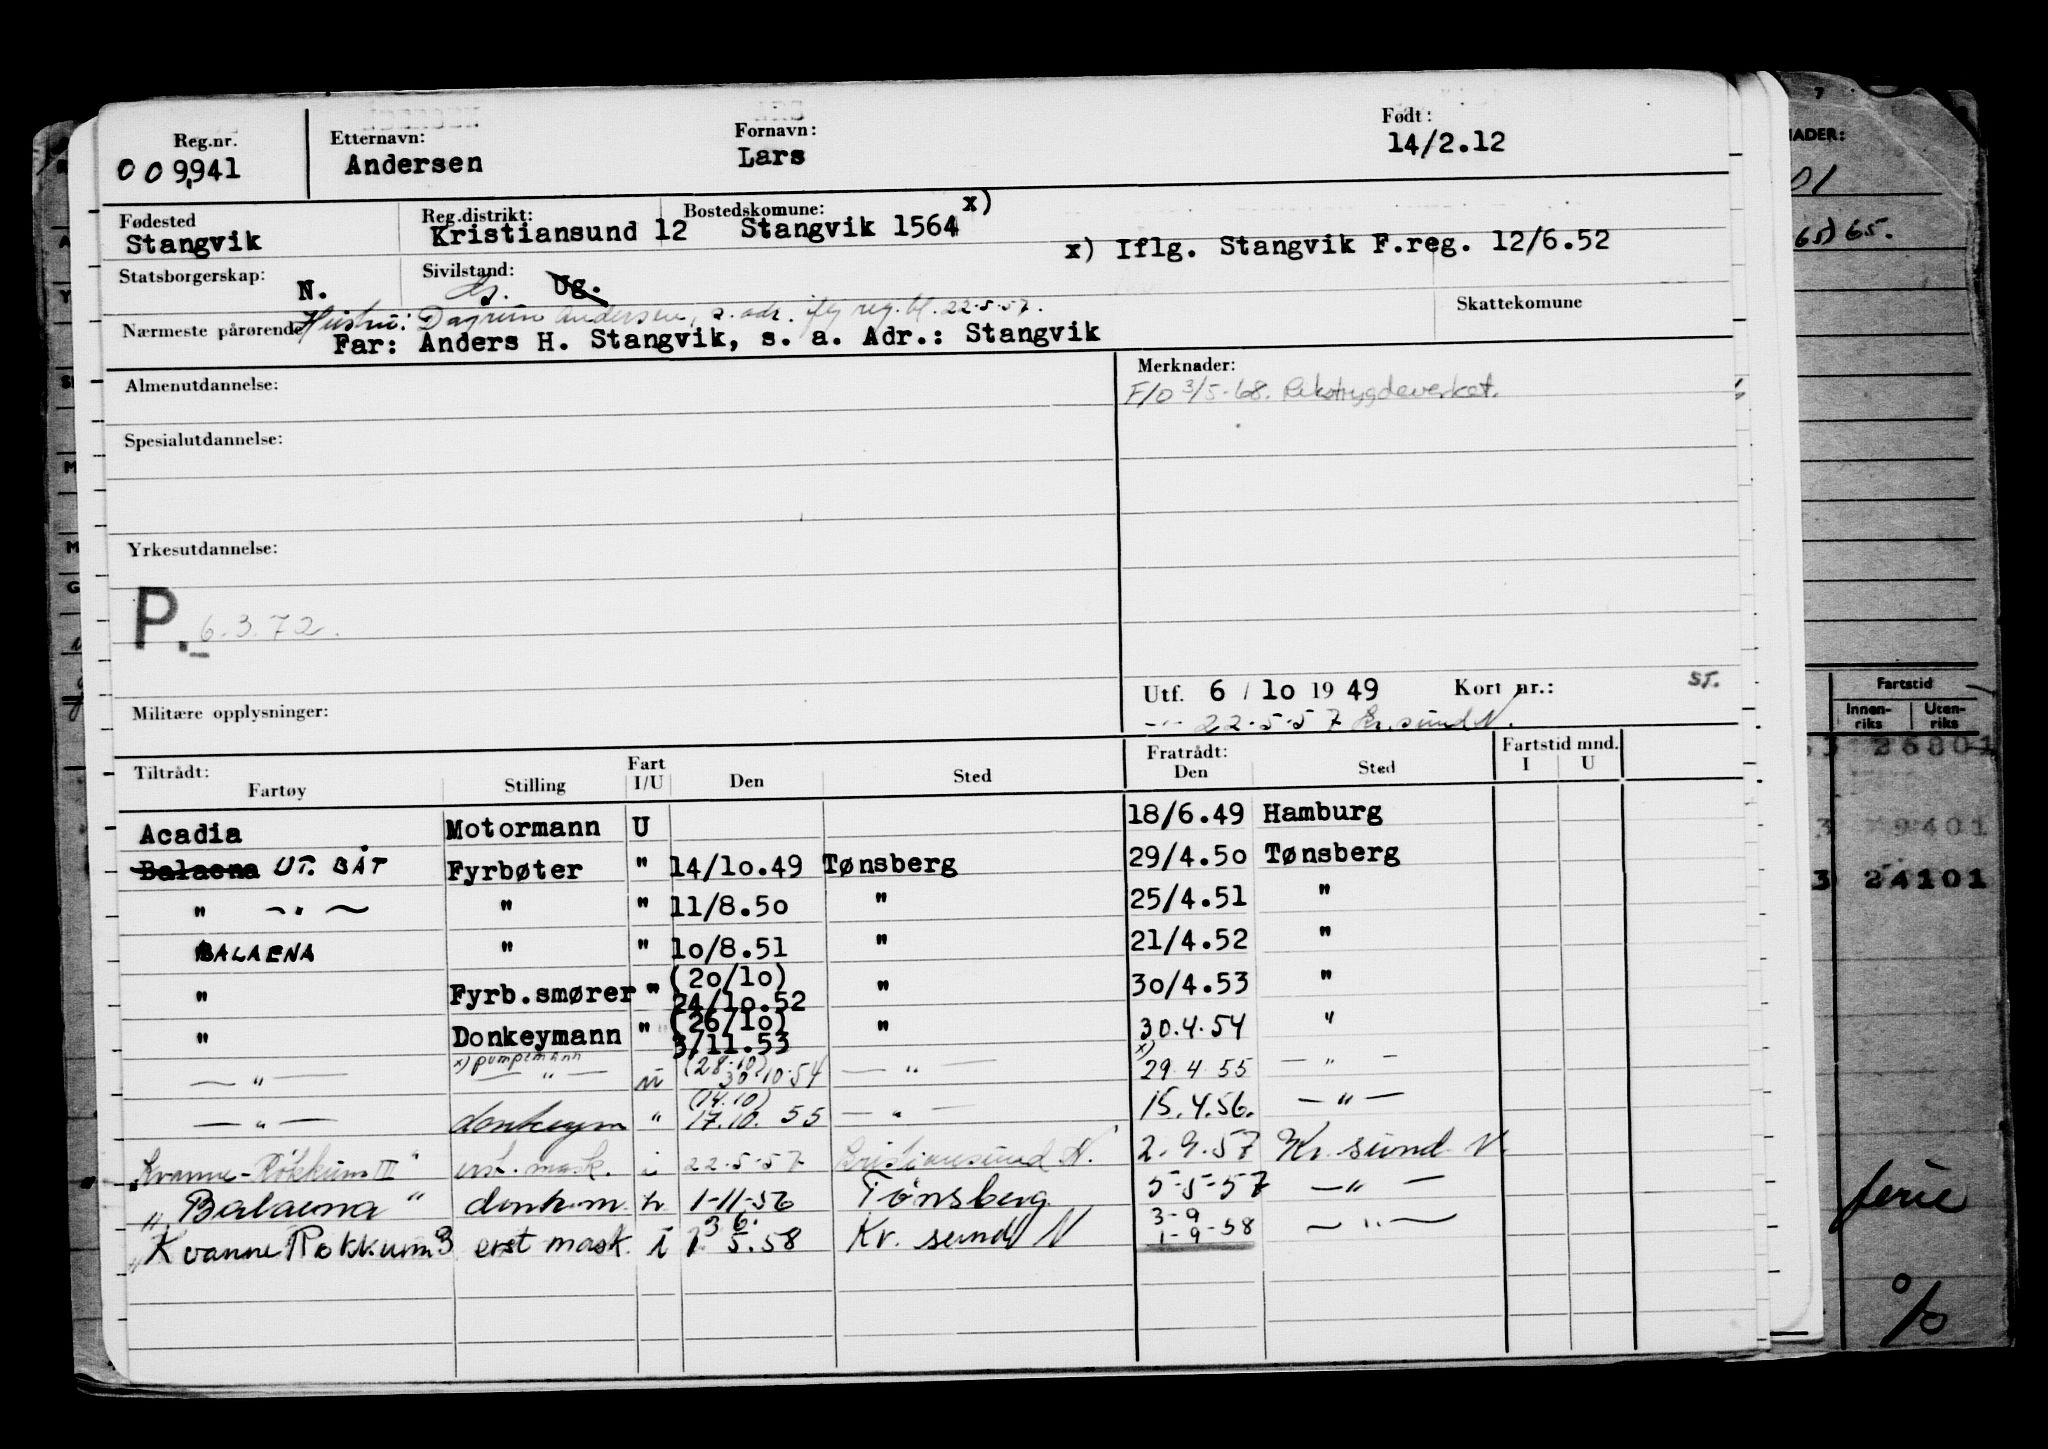 Reg.nr. Etternavn: Fornavn: Født:
009,941 Andersen Lars 14/2.12
Fødested Reg.distrikt: Bostedskomune: x)
Stangvik Kristiansund 12 Stangvik 1564 x) Iflg. Stangvik F.reg. 12/6.52
Statsborgerskap: N. Sivilstand: G. Ug.
Skattekomune
Nærmeste pårørende Hustru: Dagrun Andersen, s. adr. iflg reg.bl. 22-5-57.
Far: Anders H. Stangvik, s. a. Adr.: Stangvik
Almenutdannelse:
Merknader:
F/O 3/5-68. Rikstrygdeverket.
Spesialutdannelse:
Yrkesutdannelse:
P. 6.3.72.
Utf. 6 / 10 19 49 Kort nr.: ST.
Militære opplysninger:
-"- 22-5-57 Kr.sund N.
Tiltrådt: Fart Fratrådt: Fartstid mnd.
Fartøy Stilling I/U Den Sted Den Sted I U
Acadia Motormann U 18/6.49 Hamburg
Balaena UT. BÅT Fyrbøter " 14/10.49 Tønsberg 29/4.50 Tønsberg
" -"- " " 11/8.50 " 25/4.51 "
BALAENA " " 10/8.51 " 21/4.52 "
" Fyrb.smører " (20/10) 24/10.52 " 30/4.53 "
" Donkeymann " (26/10) 3/11.53 " 30.4.54 "
-"- x) pumpemann -"- u (28.10) 30.10.54 -"- x) 29.4.55 -"-
-"- donkeym " (14.10) 17.10.55 -"- 15.4.56. -"-
"Kvanne-Røkkum III" erst. mask. i 22-5-57 Kristiansund N. 2.9.57 Kr.sund N.
"Balaena" donk.m. u 1-11-56 Tønsberg 5-5-57 -"-
"Kvanne Røkkum 3 erst mask. i 1 3 6. 5.58 Kr. sund N 3-9 1-9-58 -"-
7
01
65) 65.
Fartstid
Innen-riks Uten-riks
3 26801
3 79401
3 24101
ferie